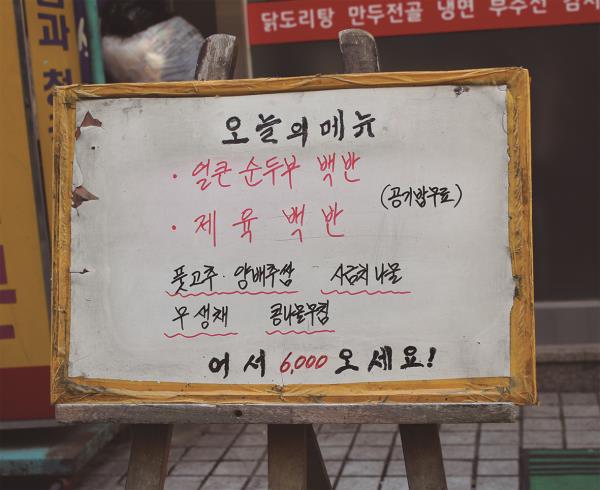 닭도리탕 만두전골 냉면
오늘의메뉴
· 얼큰순두부 백반
(공기밥무료)
· 제육백반
풋고추·양배추쌈 시금치나물
무생채 콩나물무침
어서 6,000 오세요!